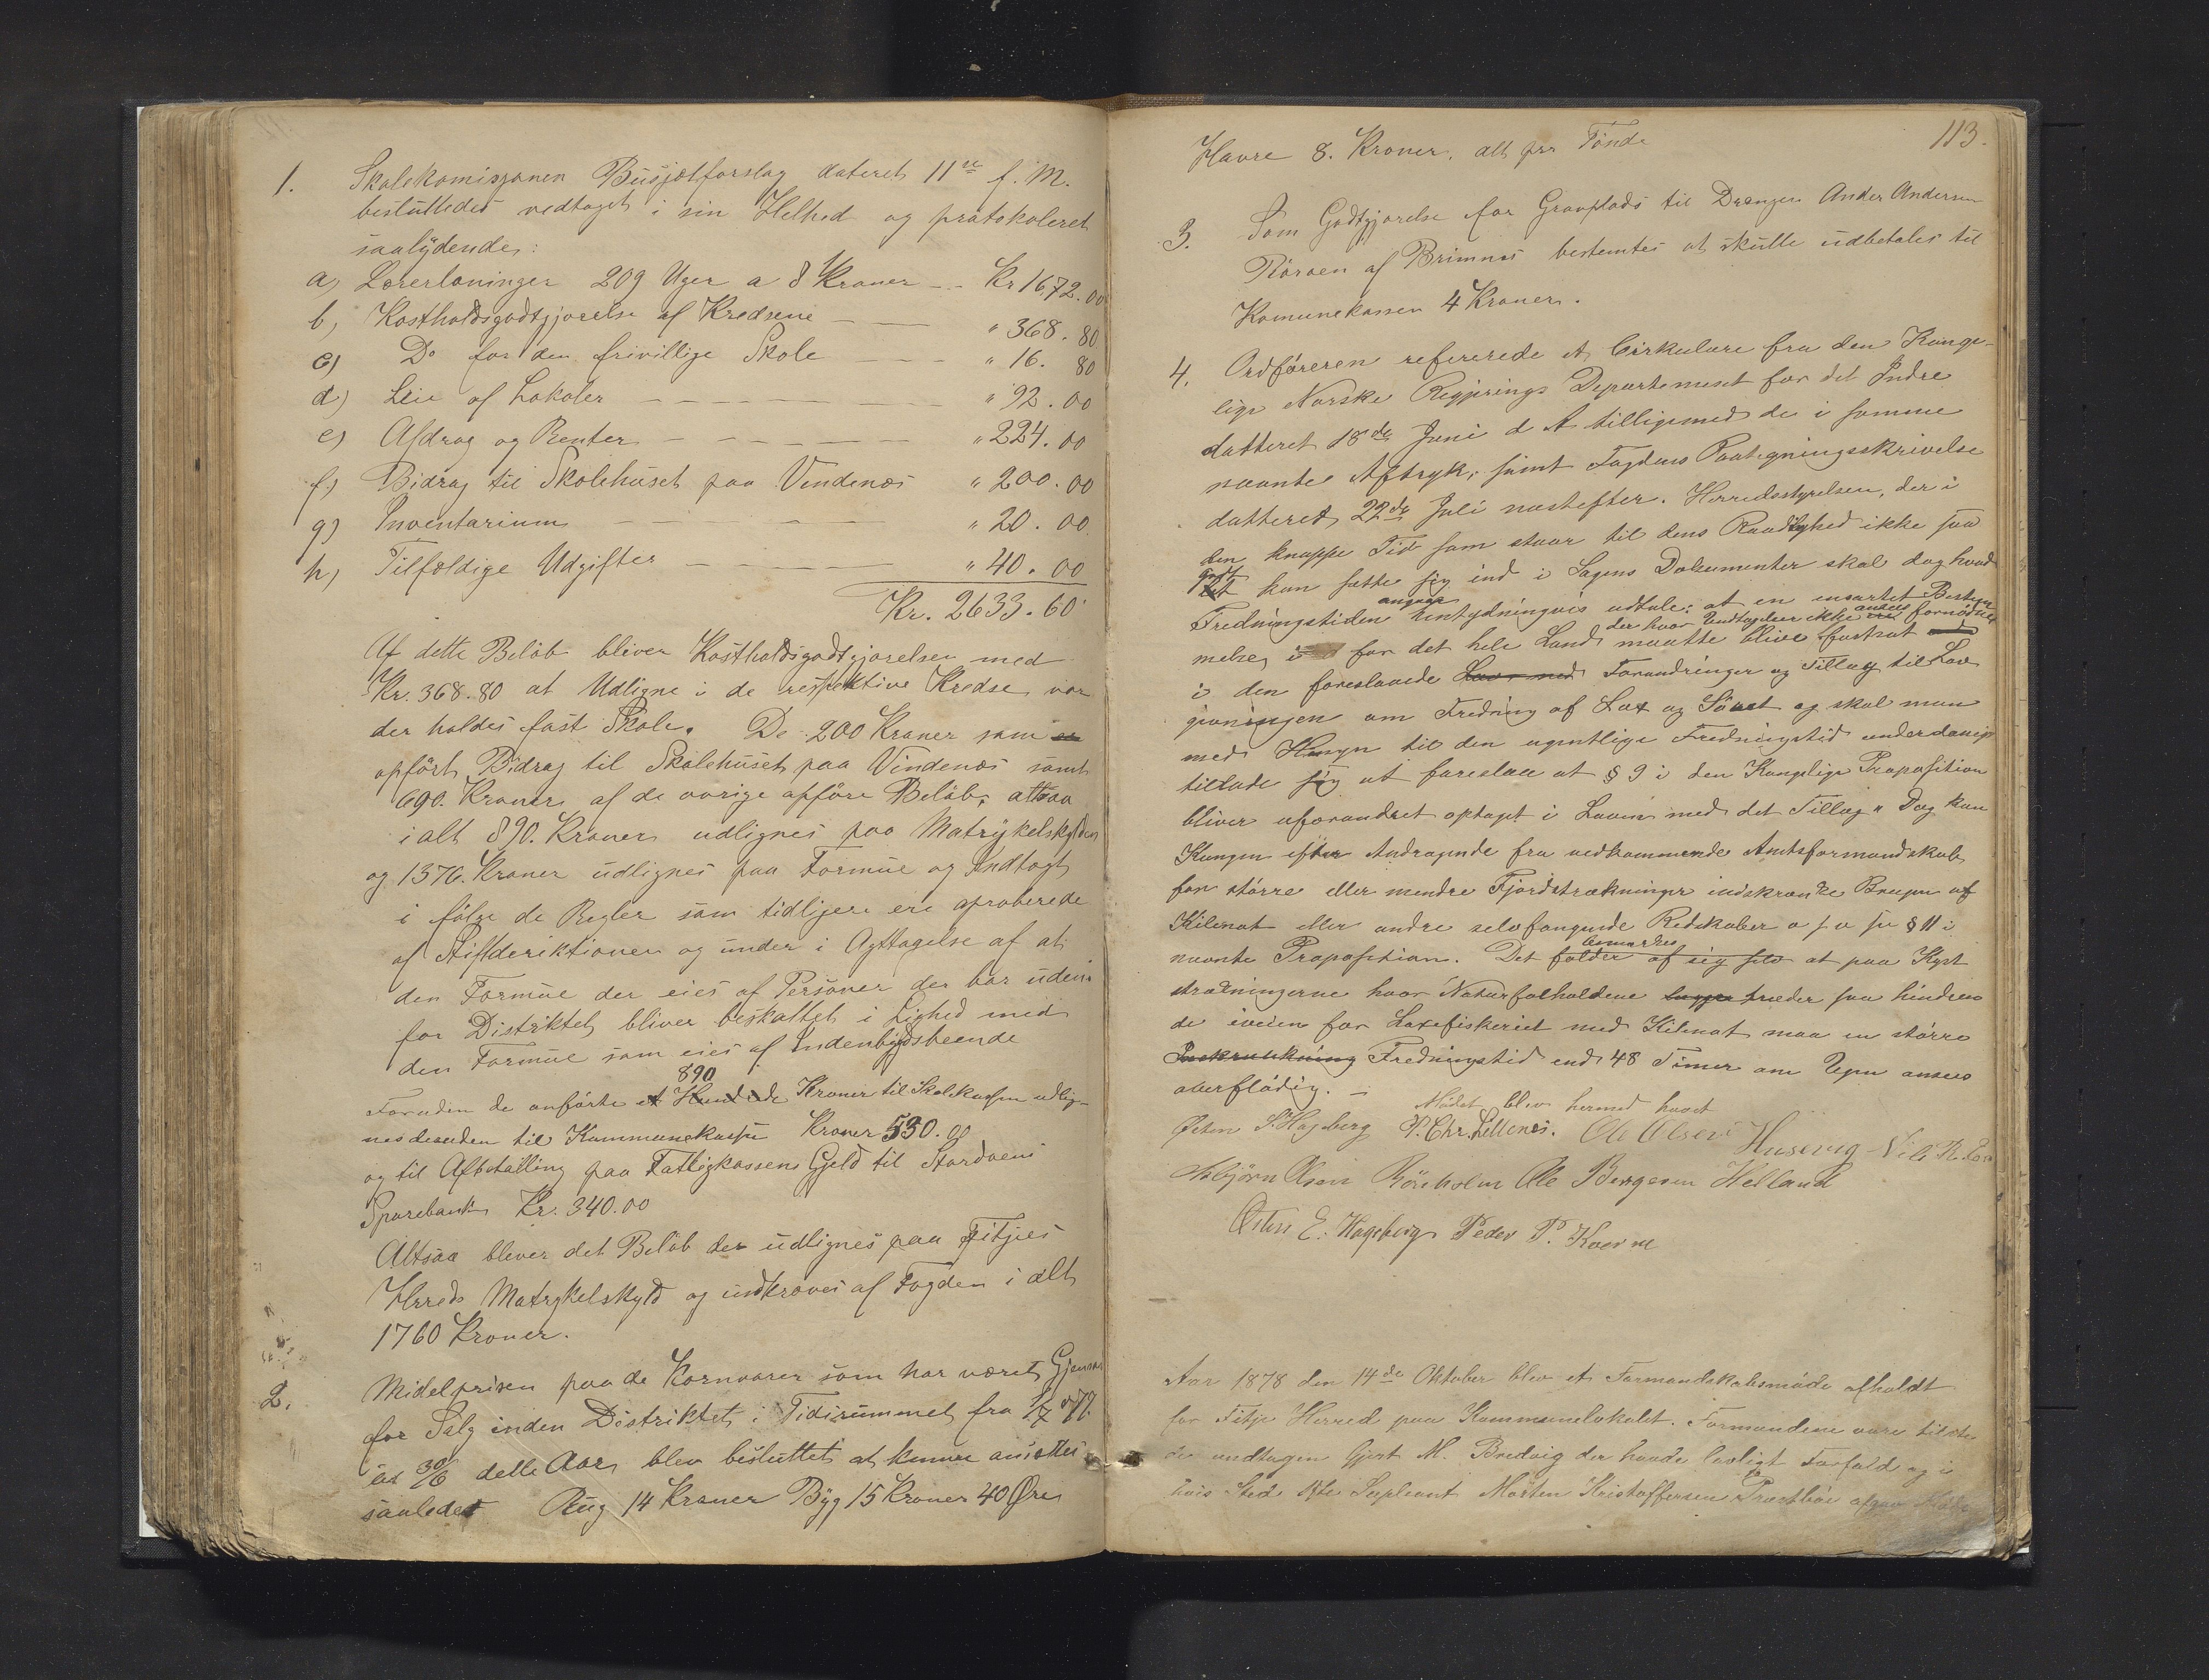 1. Skolekomisjonen Busjetforslag dateret 11te f. M.
besluttedes vedtaget i sin Helhed og protokoleret
saalydende:
a) Lærerløninger 209 Uger a 8 Kroner Kr 1672.00
b) Kostholdsgodtgjørelse af Kredsene " 368.80
c) Do for den frivillige Skole " 16.80
d) Leie af Lokaler " 92.00
e) Afdrag og Renter " 224.00
f) Bidrag til Skolehuset paa Vindenæs " 200.00
g) Inventarium " 20.00
h) Tilfældige Udgifter " 40.00
Kr. 2633.60
Af dette Beløb bliver Kostholdsgodtgjørelsen med
Kr. 368.80 at Udligne i de respektive Kredse vor
der holdes fast Skole. De 200 Kroner som
opført Bidrag til Skolehuset paa Vindenæs samt
690. Kroner af de øvrige opføre Beløb, altsaa
i alt 890. Kroner udlignes paa Matrykelskylden
og 1376. Kroner udlignes paa Formue og Indtægt
i følge de Regler som tidligere ere aproberede
af Stiftderiktionen og under i Agttagelse af at
den Formue der eies af Personer der bor uden
for Distriktet bliver beskattet i Lighed med
den Formue som eies af Indenbygdsboende
890
Foruden de anførte et Hundrede Kroner til Skolekassen udlig-
nes desuden til Kommunekassen Kroner 530.00
og til Afbetalling paa Fattigkassens Gjeld til Stordøens
Sparebank Kr. 340.00
Altsaa blever det Beløb der udlignes paa Fitjies
Herreds Matrykelskyld og indkræves af Fogden i alt
1760 Kroner.
2. Midelprisen paa de Kornvarer som har været Gjenstand
for Salg inden Distriktet i Tidsrummet fra 1/7 77.
til 30/6 dette Aar, blev besluttet at kunne ansættes
saaledes Rug 14 Kroner Byg 15 Kroner 40 Øre
113.
Havre 8. Kroner. alt per Tønde
3. Som Godtgjørelse for Gravplads til Drengen Ander Andersen
Røroen af Brimnæs bestemtes at skulle udbetales til
Komunekassen 4 Kroner.
4. Ordføreren refererede et Cirkulære fra den Konge-
lige Norske Regjerings Departement for det Indre
datteret 18de Juni d A tilligemed de i samme
nævnte Aftryk, samt Fogdens Paategningsskrivelse
datteret 22de Juli næstefter. Herredsstyrelsen, der i
den knappe Tid som staar til dens Raadighed ikke saa
godt
kan sætte sig ind i Sagens Dokumenter skal dog hvad
angaar
Fredningstiden hentydningsvis udtale: at en ensartet Bestem
der hvor Undtagelser ikke ansees fornødne
melse for det hele Land maatte blive fastsat
i den foreslaaede Lov med Forandringer og Tillæg til Lov
givningen om Fredning af Lax og Søret og skal man
med Hensyn til den ugentlige Fredningstid underdanigst
tillade sig at foreslaa at § 9 i den Kongelige Proposition
bliver uforandret optaget i Loven med det Tillæg "Dog kan
Kongen efter Andragende fra vedkommende Amtsformandskab
for større eller mindre Fjordstrækninger indskrænke Brugen af
Kilenot eller andre selvfangende Redskaber o s v se § 11 i
bemærkes
nævnte Proposition. Det falder af sig selv at paa Kyst
strækningerne hvor Naturforholdene lægge træder saa hindren
de iveien for Laxefiskeriet med Kilenot maa en større
Inskrænkning Fredningstid end 48 Timer om Ugen ansees
overflødig.
Mødet blev hermed hævet
Østen S. Hageberg P. Chr. Lillenes. Ole Olsen Husevug Nils R.
Asbjørn Olsen Rørsholm Ole Bergesen Helland
Østen E. Hageberg Peder P. Koerne
Aar 1878 den 14de Oktober blev et Formandskabsmøde afholdt
for Fitje Herred paa Kommunelokalet. Formændene vare tilste
de undtagen Gjert M. Bredvig der havde lovligt Forfald og i
hvis Sted 1ste Supleant Mårten Kristoffersen afgav Møde